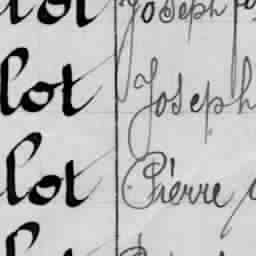 lot Joseph
lot Joseph
lot Pierre